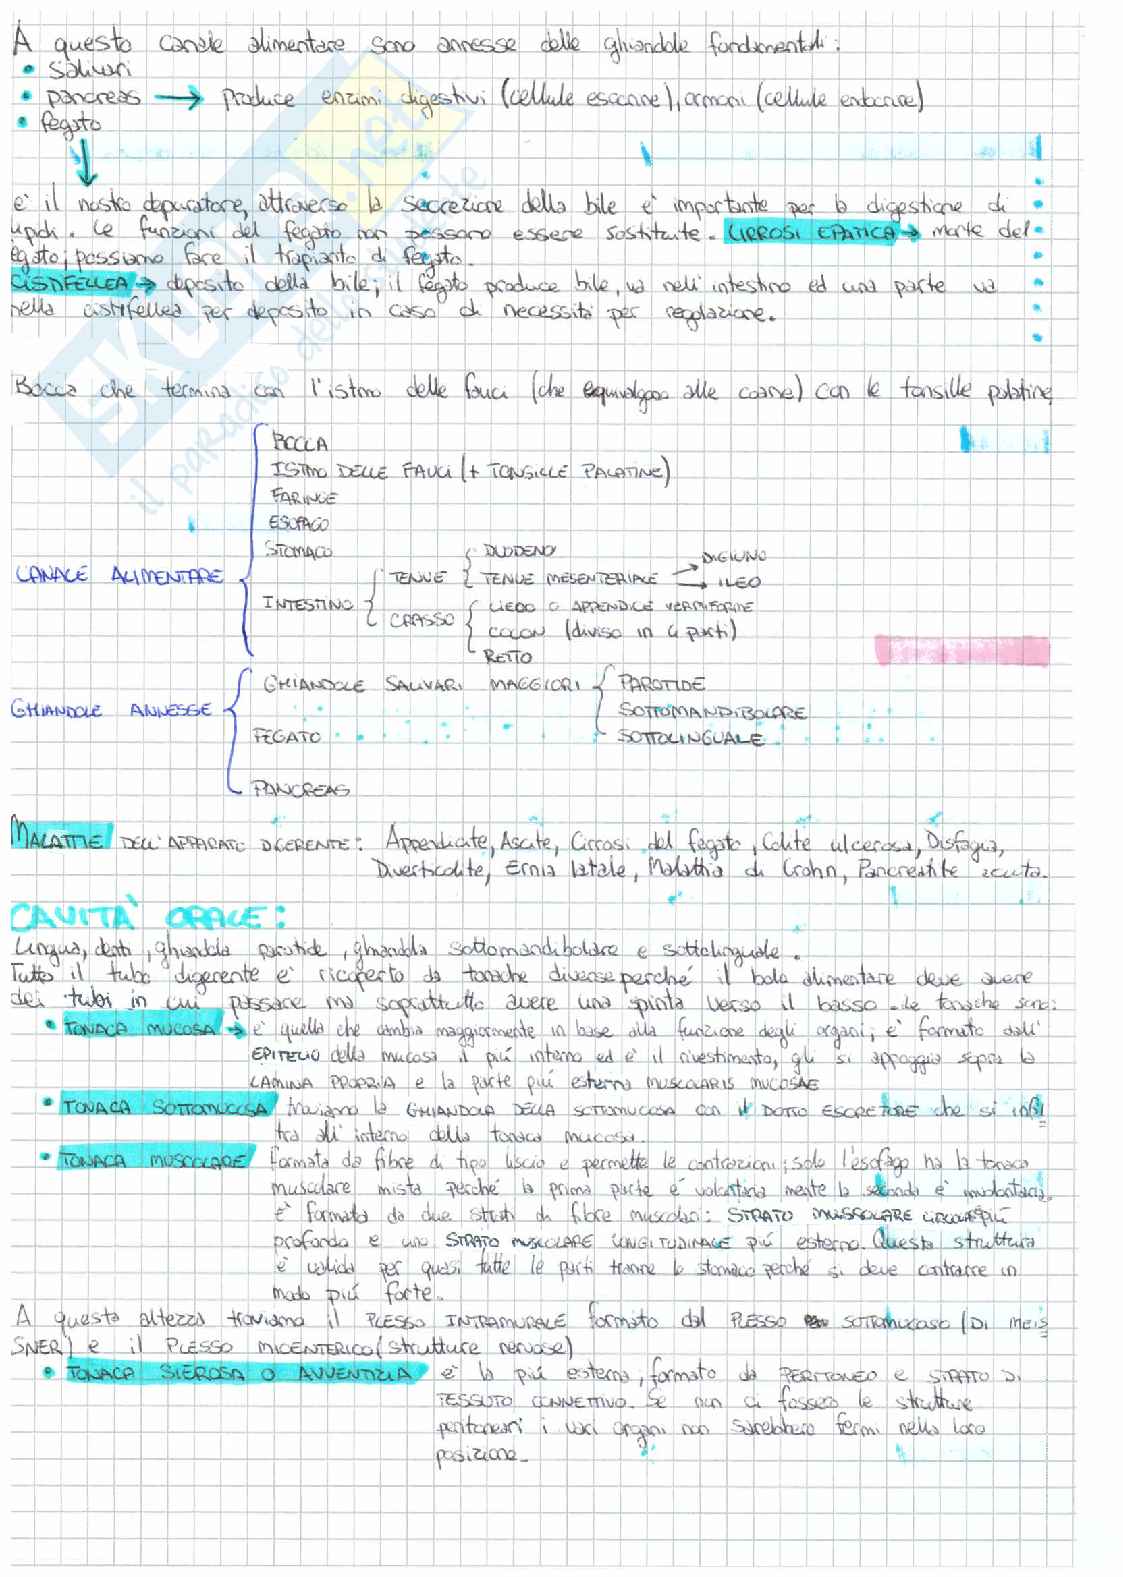 A questo canale alimentare sono annesse delle ghiandole fondamentali:
• Salivari
• pancreas → produce enzimi digestivi (cellule esocrine), ormoni (cellule endocrine)
• fegato
è il nostro depuratore, attraverso la secrezione della bile è importante per la digestione di
lipidi. Le funzioni del fegato non possono essere sostituite. CIRROSI EPATICA → morte del
fegato; possiamo fare il trapianto di fegato.
CISTIFELLEA → deposito della bile; il fegato produce bile, va nell'intestino ed una parte va
nella cistifellea per deposito in caso di necessità per regolazione.
Bocca che termina con l'istmo delle fauci (che equivalgono alle coane) con le tonsille palatine
BOCCA
ISTMO DELLE FAUCI (+ TONSILLE PALATINE)
FARINGE
ESOFAGO
STOMACO
DUODENO
DIGIUNO
CANALE ALIMENTARE
TENUE
TENUE MESENTERIALE
ILEO
INTESTINO
CIECO O APPENDICE VERMIFORME
CRASSO
COLON (diviso in 4 parti)
RETTO
GHIANDOLE SALIVARI MAGGIORI
PAROTIDE
GHIANDOLE ANNESSE
SOTTOMANDIBOLARE
FEGATO
SOTTOLINGUALE
PANCREAS
MALATTIE DELL'APPARATO DIGERENTE: Appendicite, Ascite, Cirrosi del fegato, Colite ulcerosa, Disfagia,
Diverticolite, Ernia iatale, Malattia di Crohn, Pancreatite acuta.
CAVITA' ORALE:
Lingua, denti, ghiandola parotide, ghiandola sottomandibolare e sottolinguale.
Tutto il tubo digerente è ricoperto da tonache diverse perché il bolo alimentare deve avere
dei tubi in cui passare ma soprattutto avere una spinta verso il basso. Le tonache sono:
• TONACA MUCOSA → è quella che cambia maggiormente in base alla funzione degli organi; è formato dall'
EPITELIO della mucosa il più interno ed è il rivestimento, gli si appoggia sopra la
LAMINA PROPRIA e la parte più esterna MUSCOLARIS MUCOSAE
• TONACA SOTTOMUCOSA troviamo la GHIANDOLA DELLA SOTTOMUCOSA con il DOTTO ESCRETORE che si infil
tra all'interno della tonaca mucosa.
• TONACA MUSCOLARE formata da fibre di tipo liscio e permette le contrazioni; solo l'esofago ha la tonaca
muscolare mista perché la prima parte è volontaria mente la seconda è involontaria.
è formata da due strati di fibre muscolari: STRATO MUSSOLARE CIRCOLARE più
profondo e uno STRATO MUSCOLARE LONGITUDINALE più esterno. Questa struttura
è valida per quasi tutte le parti tranne lo stomaco perché si deve contrarre in
modo più forte.
A questa altezza troviamo il PLESSO INTRAMURALE formato dal PLESSO SOTTOMUCOSO (DI MEIS
SNER) e il PLESSO MIENTERICO (strutture nervose)
• TONACA SIEROSA O AVVENTIZIA è la più esterna, formato da PERITONEO e STRATO DI
TESSUTO CONNETTIVO. Se non ci fossero le strutture
peritoneari i vari organi non sarebbero fermi nella loro
posizione.
SKUOLA.net
il paradiso dello studente